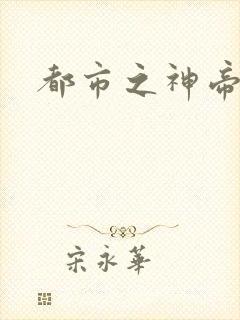 都市之神帝
宋永華